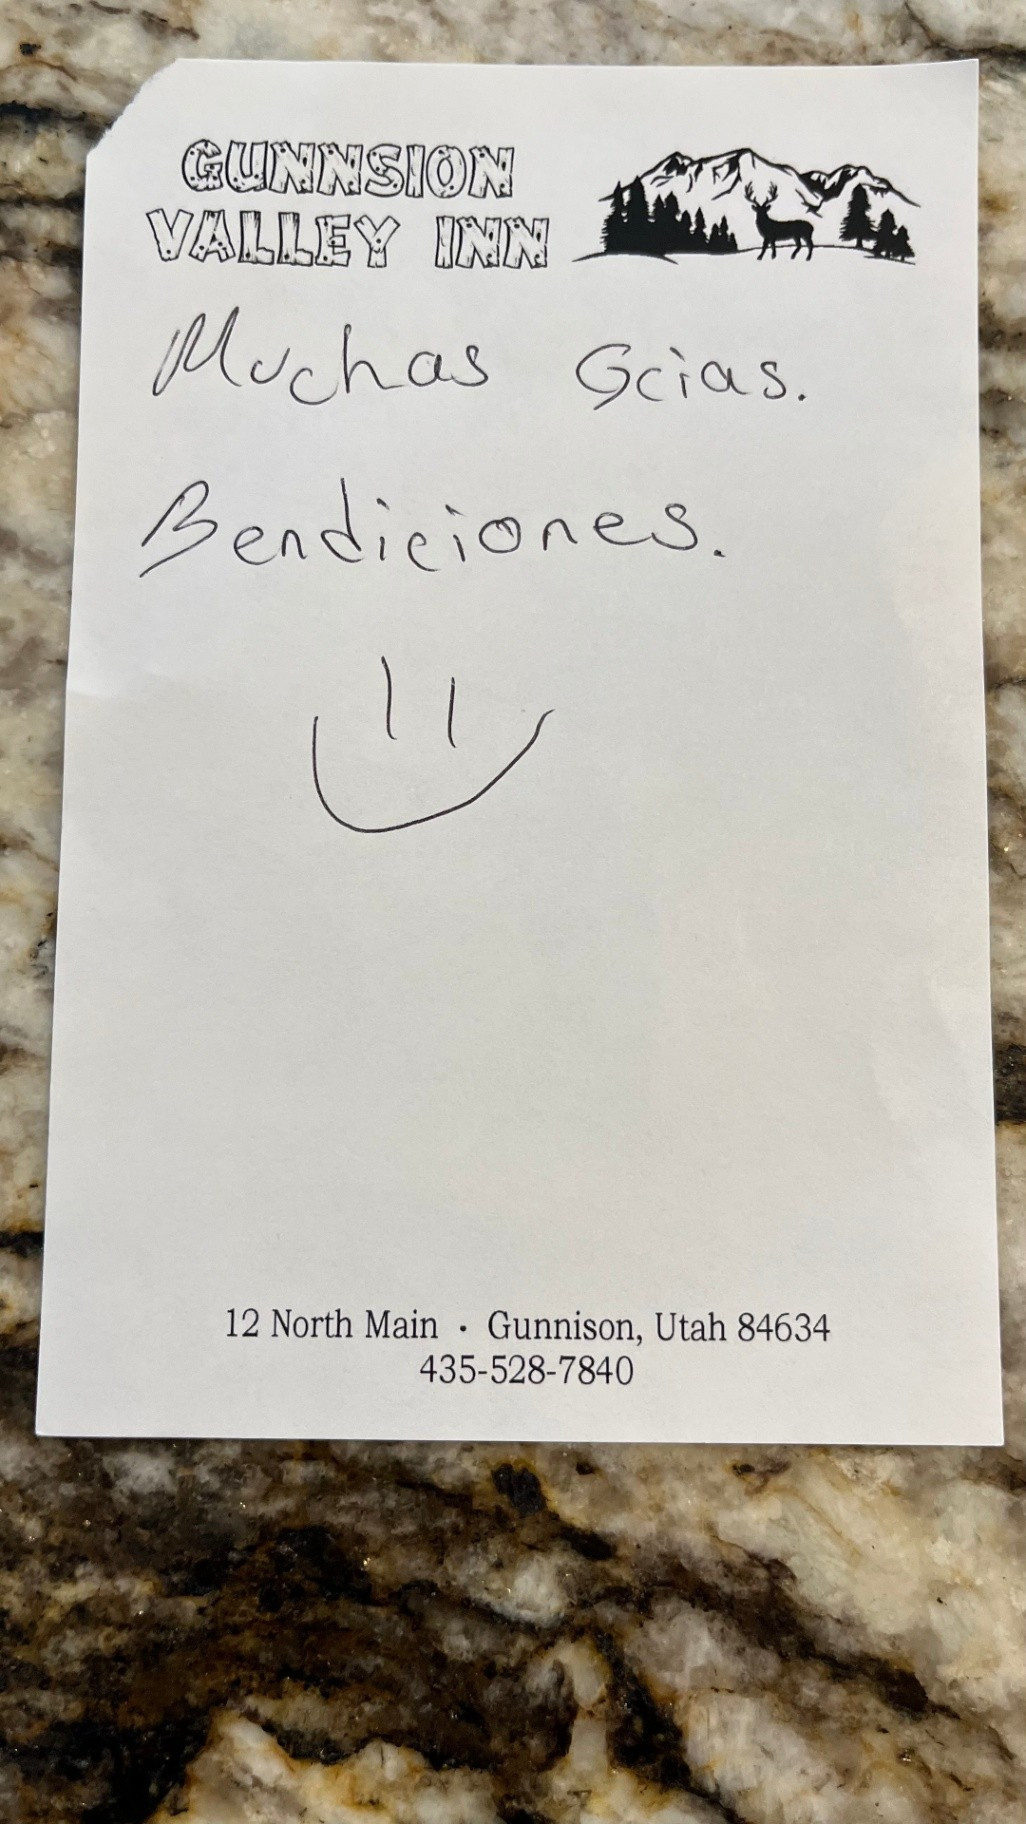 GUNNSION
VALLEY INN
Muchas Gcias.
Bendiciones.
12 North Main · Gunnison, Utah 84634
435-528-7840